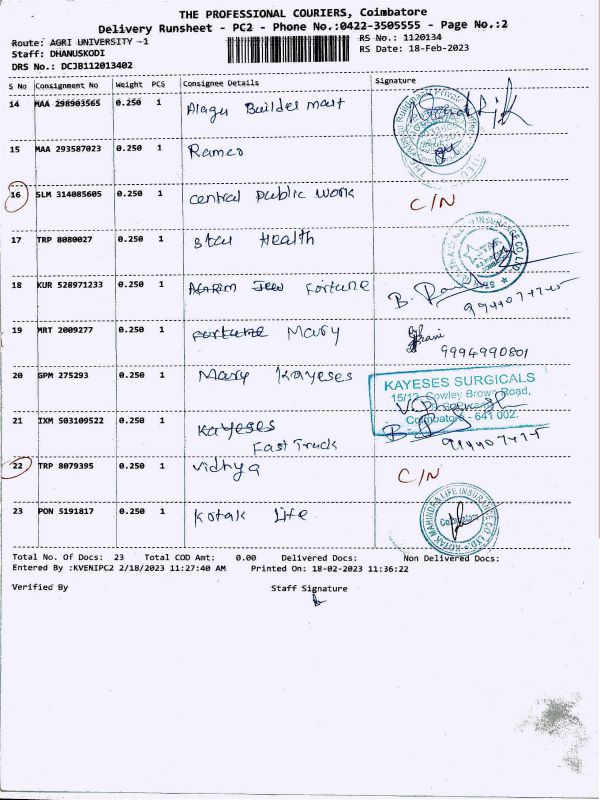 THE PROFESSIONAL COURIERS, Coimbatore
Delivery Runsheet - PC2 - Phone No.:0422-3505555 - Page No.:2
Route: AGRI UNIVERSITY -1
RS No.: 1120134
Staff: DHANUSKODI
RS Date: 18-Feb-2023
DRS No.: DCJB112013402
S No Consignment No Weight PCS Consignee Details Signature
14 MAA 298903565 0.250 1 Alagu Builder mart
15 MAA 293587023 0.250 1 Ramco
16 SLM 314085605 0.250 1 central public work C/N
17 TRP 8080027 0.250 1 Star Health
18 KUR 528971233 0.250 1 Fortune B.
19 MRT 2009277 0.250 1 fortune Mary
9994990801
20 GPM 275293 0.250 1 Mary Kayeses
KAYESES SURGICALS
15/12, Cowley Brown Road,
Coimbatore - 641 002.
21 IXM S03109522 0.250 1 Kayeses
Fast Truck
22 TRP 8079395 0.250 1 Vidhya C/N
23 PON 5191817 0.250 1 Kotak Life
KOTAK MAHINDRA LIFE INSURANCE CO LTD.
Coimbatore
Total No. Of Docs: 23 Total COD Amt: 0.00 Delivered Docs: Non Delivered Docs:
Entered By :KVENIPC2 2/18/2023 11:27:40 AM Printed On: 18-02-2023 11:36:22
Verified By Staff Signature